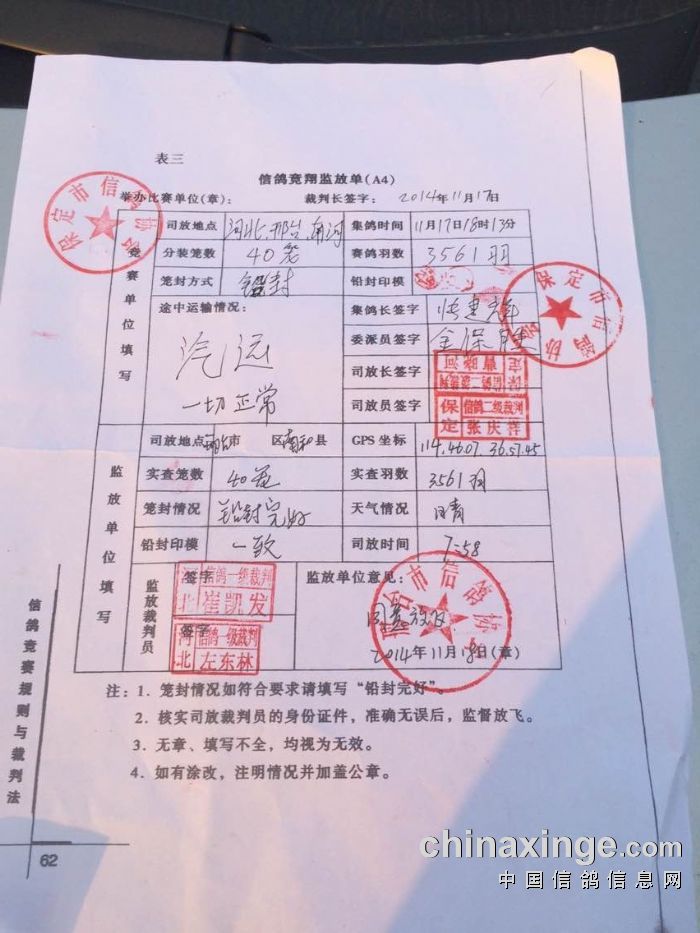 表三
信鸽竞翔监放单(A4)
举办比赛单位(章): 裁判长签字: 2014年11月17日
保定市信鸽协会
竞赛单位填写
司放地点 河北.邢台.南河 集鸽时间 11月17日18时13分
分装笼数 40笼 赛鸽羽数 3561羽
笼封方式 铅封 铅封印模
途中运输情况: 集鸽长签字
汽运 委派员签字 金保
一切正常 司放长签字 保定 信鸽二级裁判 曹晓河
司放员签字 保定 信鸽二级裁判 张庆祥
保定市信鸽协会
监放单位填写
司放地点 邢台市 区南和县 GPS 坐标 114.46.07 36.57.45
实查笼数 40笼 实查羽数 3561羽
笼封情况 铅封完好 天气情况 晴
铅封印模 一致 司放时间 7:58
监放裁判员 签字 河北 信鸽一级裁判 崔凯发
签字 河北 信鸽一级裁判 左东林
监放单位意见:
同意放飞
2014年11月18日(章)
邢台市信鸽协会
注:1. 笼封情况如符合要求请填写“铅封完好”。
2. 核实司放裁判员的身份证件,准确无误后,监督放飞。
3. 无章、填写不全,均视为无效。
4. 如有涂改,注明情况并加盖公章。
信鸽竞赛规则与裁判法
62
chinaxinge.com
中国信鸽信息网